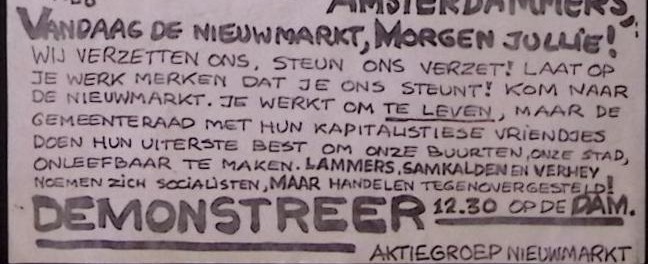 AMSTERDAMMERS,
VANDAAG DE NIEUWMARKT, MORGEN JULLIE!
WIJ VERZETTEN ONS, STEUN ONS VERZET! LAAT OP
JE WERK MERKEN DAT JE ONS STEUNT! KOM NAAR
DE NIEUWMARKT. JE WERKT OM TE LEVEN, MAAR DE
GEMEENTERAAD MET HUN KAPITALISTIESE VRIENDJES
DOEN HUN UITERSTE BEST OM ONZE BUURTEN, ONZE STAD,
ONLEEFBAAR TE MAKEN. LAMMERS, SAMKALDEN EN VERHEY
NOEMEN ZICH SOCIALISTEN, MAAR HANDELEN TEGENOVERGESTELD!
DEMONSTREER 12.30 OP DE DAM.
AKTIEGROEP NIEUWMARKT